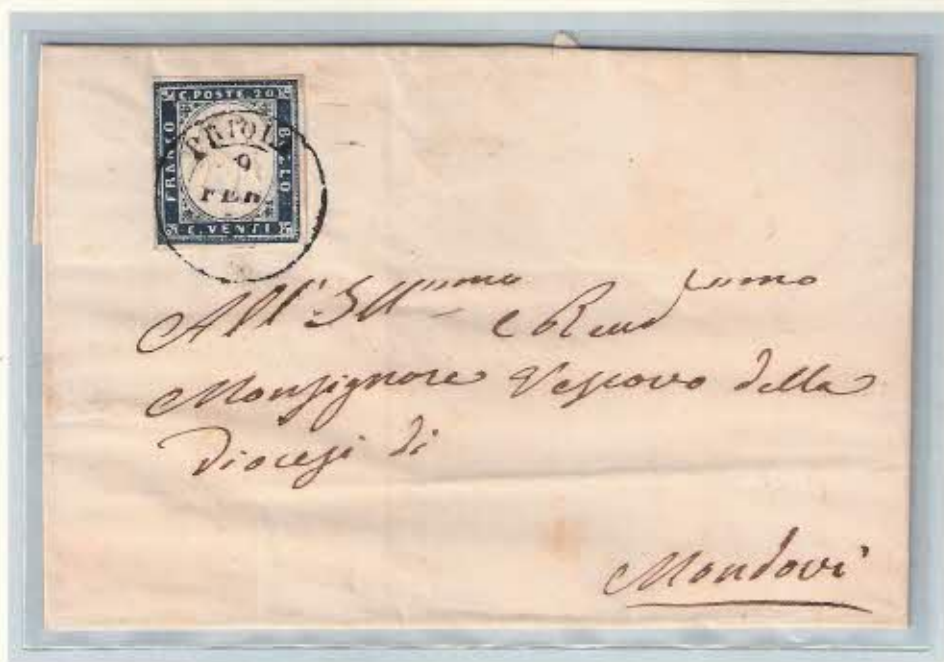 C. POSTE. 20
FRANCO
BOLLO
C. VENTI
PRIOLA
9
FEB
All'Ill.mo e Revd.mo
Monsignore Vescovo della
Diocesi di
Mondovì